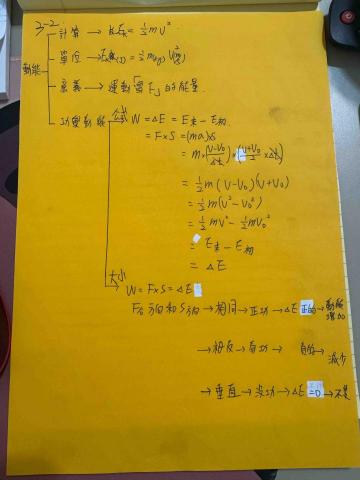 3-2
動能
計算 → Ek = ½mv²
單位 → Ek(J) = ½m(kg) V(m/s)²
意義 → 運動中的能量
功變動能 公式 W = ΔE = E末 - E初
= F×S = (ma)×S
= m×(V-V₀/Δt)×(V+V₀/2 ×Δt)
= ½m(V-V₀)(V+V₀)
= ½m(V²-V₀²)
= ½mV² - ½mV₀²
= E末 - E初
= ΔE
大小 W = F×S = ΔE
F合方向和S方向 → 相同 → 正功 → ΔE 正的 → 動能增加
→ 相反 → 負功 → 負的 → 減少
→ 垂直 → 沒功 → ΔE =0 → 不變